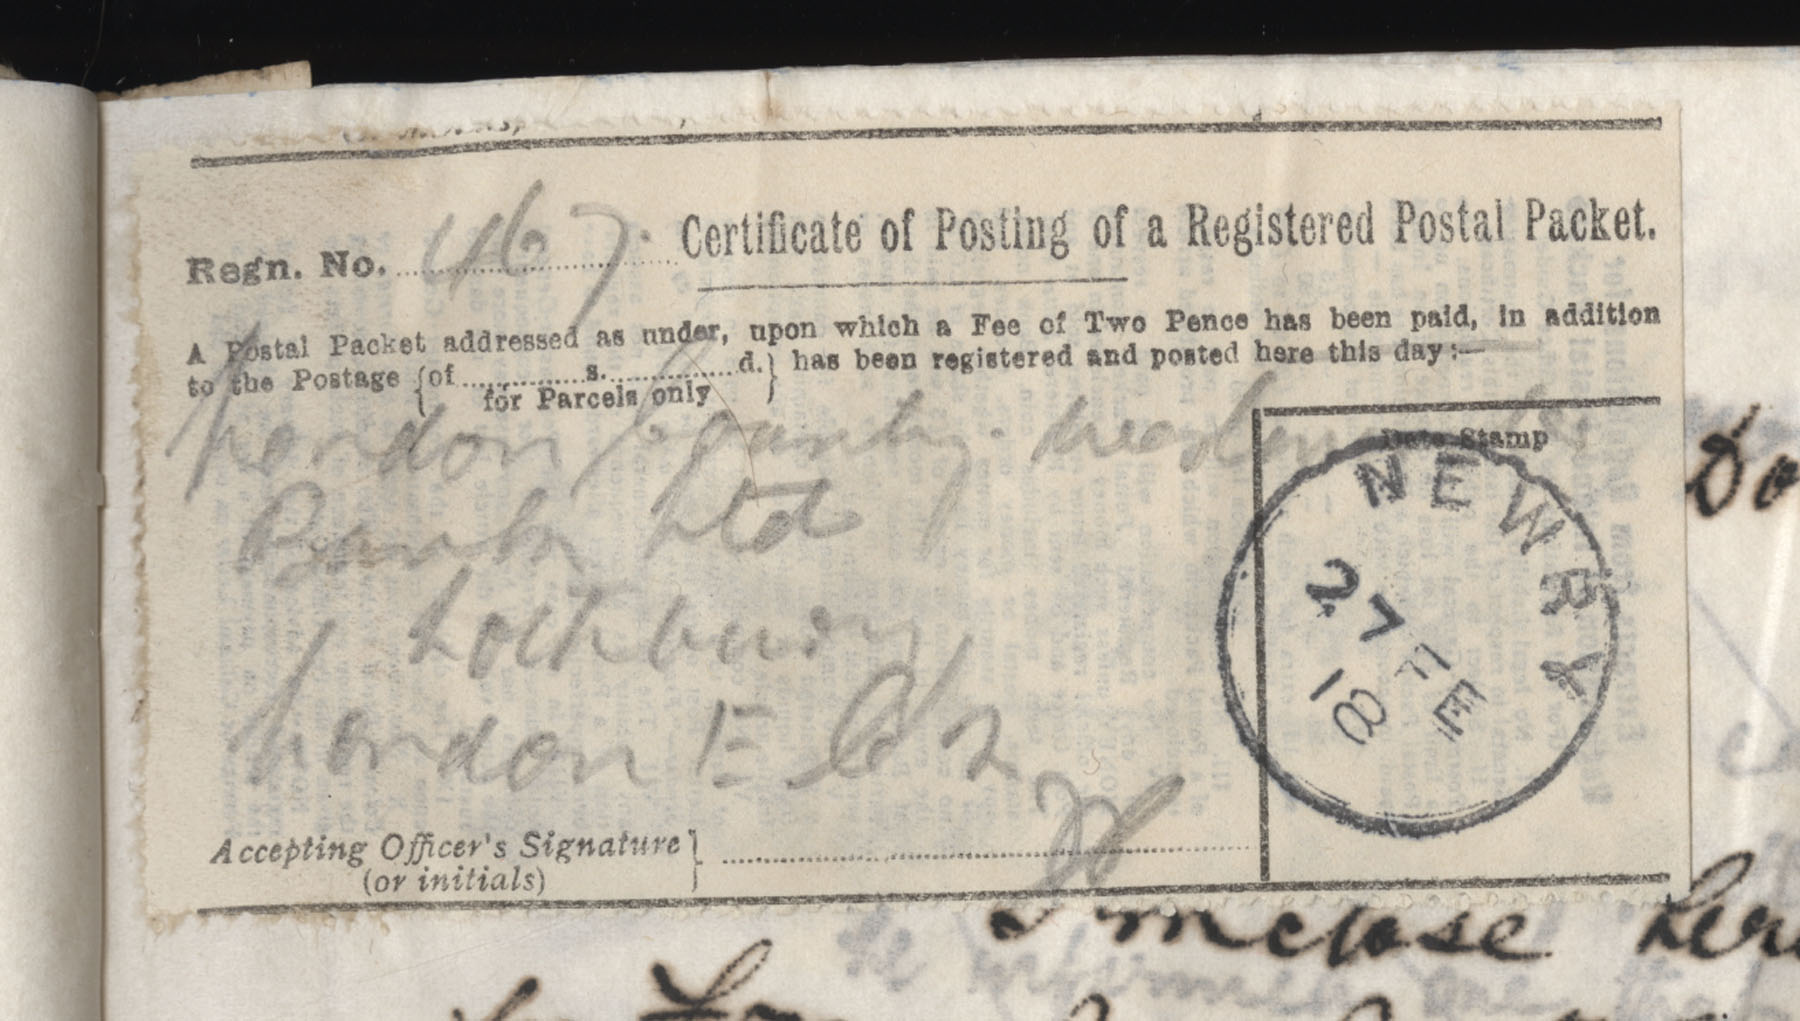 Regn. No. 467. Certificate of Posting of a Registered Postal Packet.
A Postal Packet addressed as under, upon which a Fee of Two Pence has been paid, in addition
to the Postage {of ............s.............d.} has been registered and posted here this day:—
for Parcels only
London County
Bank Ltd
Lothbury
London E C 2
Date Stamp
NEWRY
27 FE
18
Accepting Officer's Signature}
(or initials)
Do
I inclose here